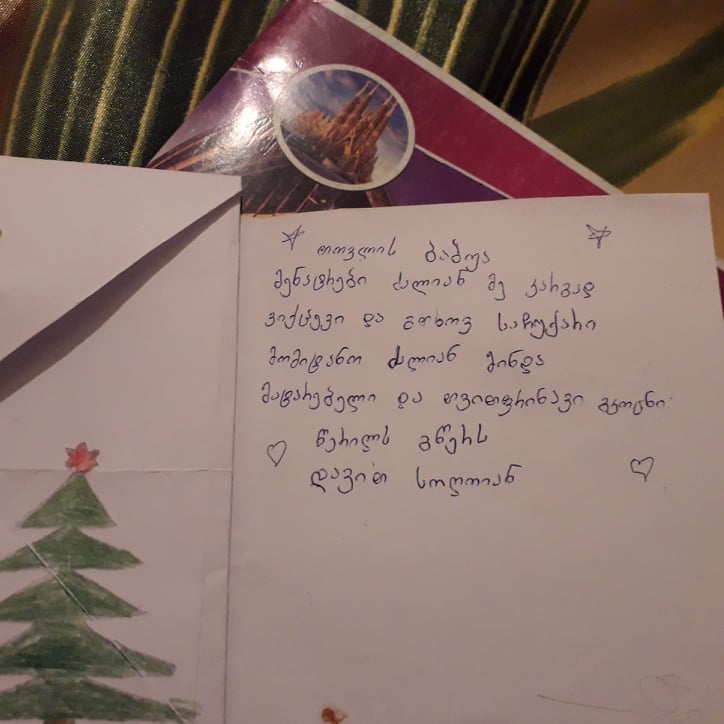 თოვლის ბაბუა
მენატრები ძალიან მე კარგად
ვიქცევი და გთხოვ საჩუქარი
მომიტანო ძალიან მინდა
მატარებელი და თვითფრინავი გკოცნი
წერილს გწერს
დავით სოღოიან